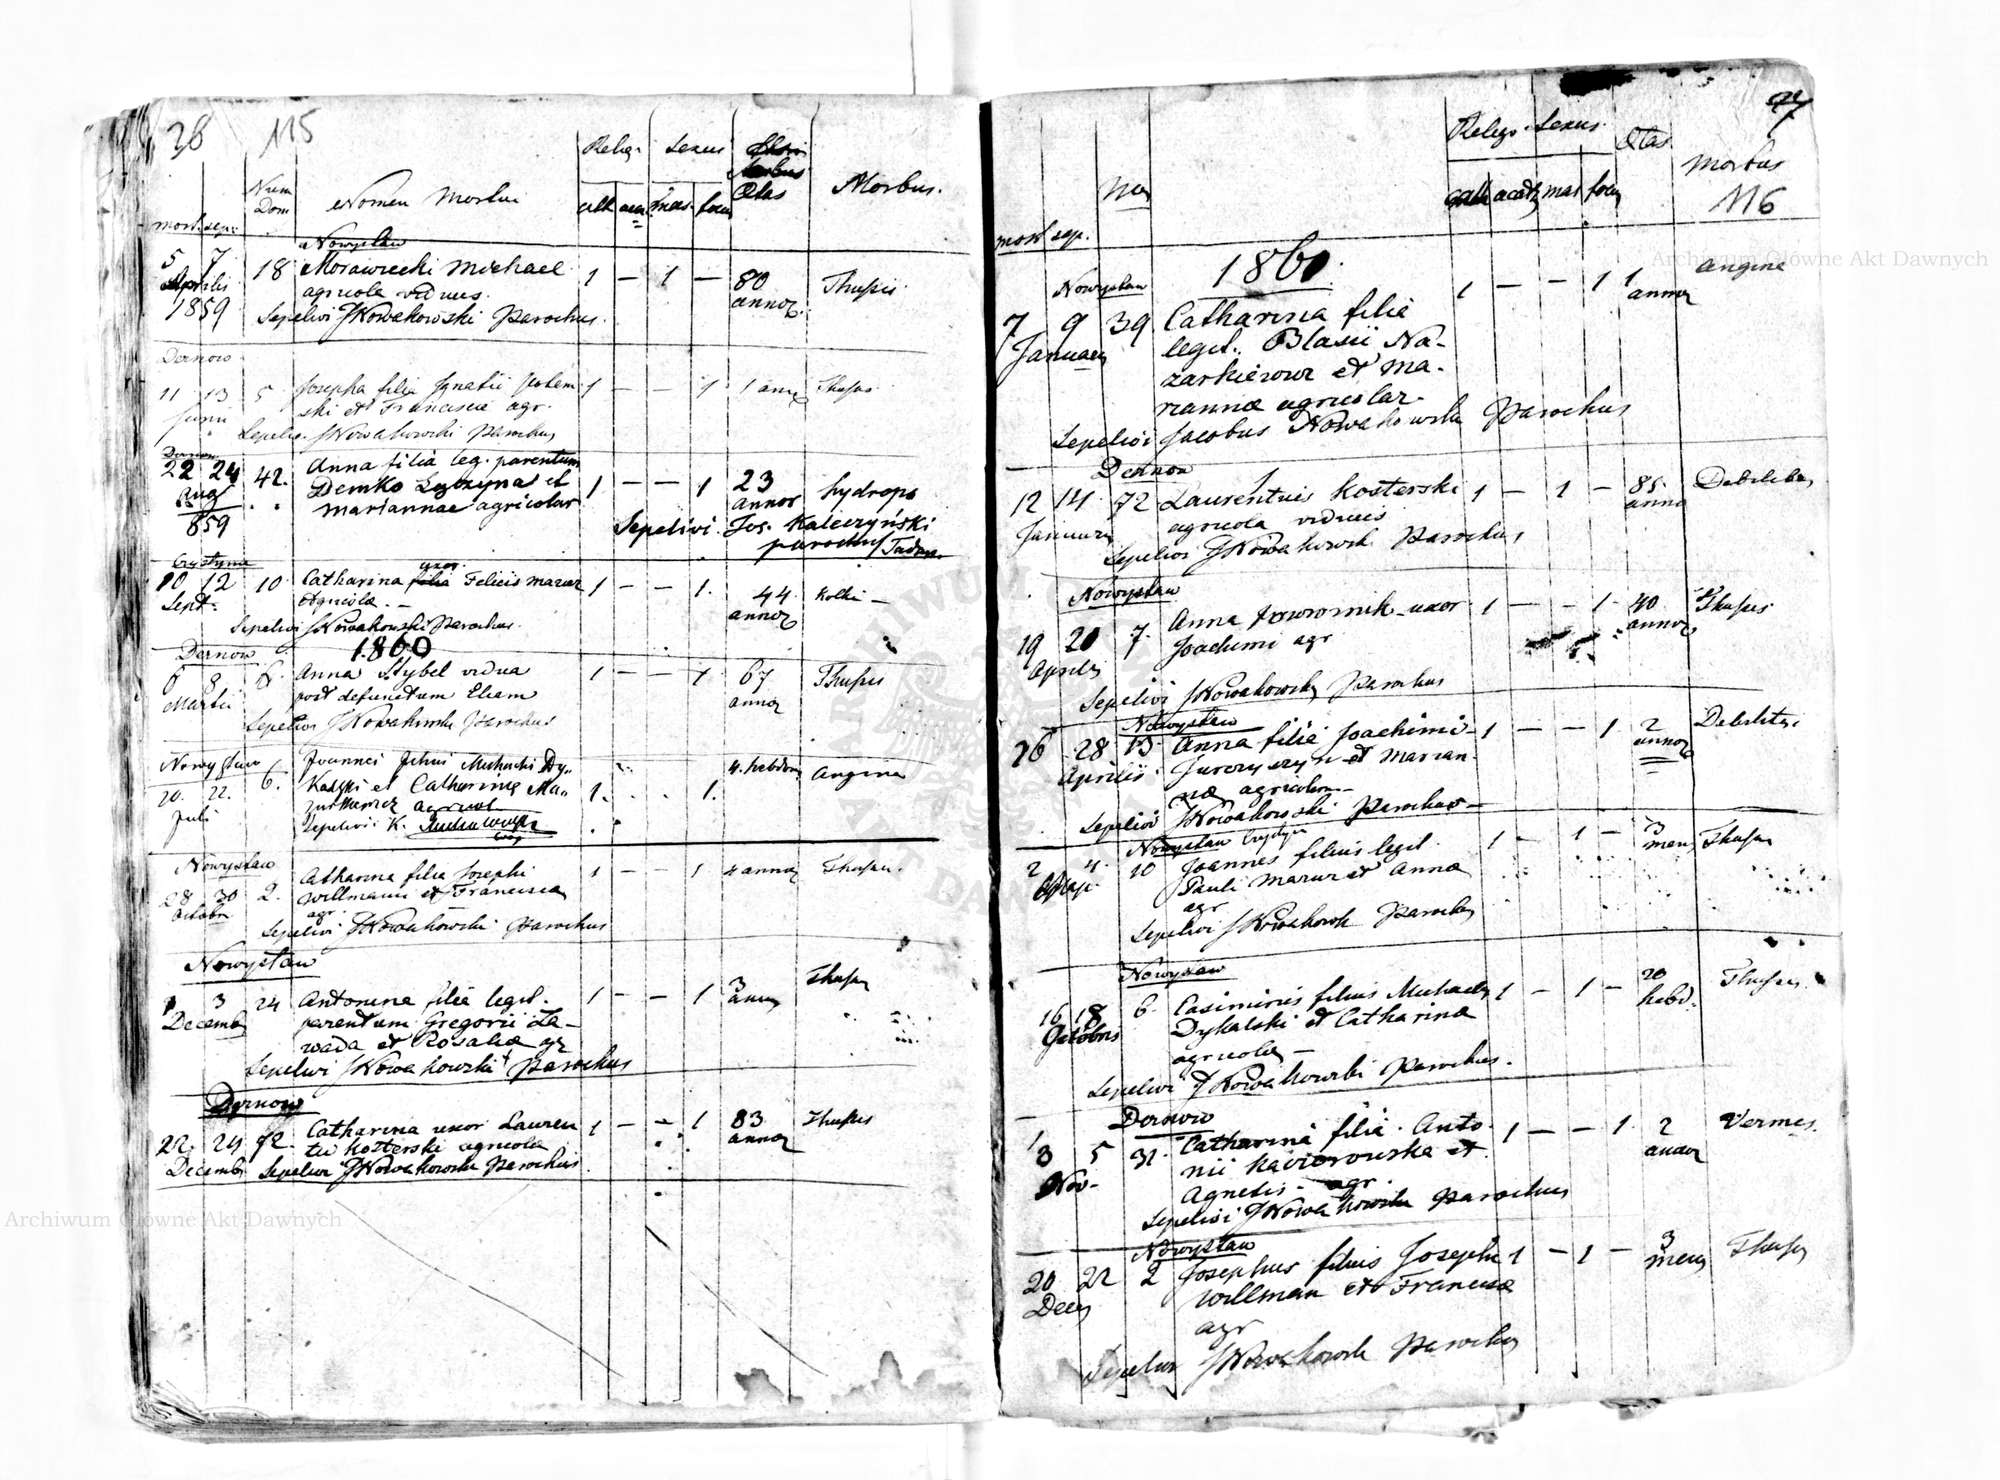 28 115
Relig. Sexus
Num Dom Nomen Mortui Aetas Morbus.
mort. sep.
Nowystaw
5 7 18 Morawiecki Michael 1 — 1 — 80 Thusis
Aprilis agricola viduus annor.
1859 Sepelivi JNowakowski Parochus.
Dernow
11 13 5 Josepha filia Ignatii 1 — — 1 1 Thusis
Junii ski et Franciscae agr.
Sepelivi JNowakowski Parochus
Dernow
22 24 42. Anna filia leg. parentum 1 — — 1 23 hydrops
Aug Demko et annor
859 Mariannae agricolar
Sepelivi. Jos. Kaleczyński
parochus
10 12 10. Catharina uxor Felicis Mazur 1 — — 1. 44 Kolki —
Sept. Agricola. — annor
Sepelivi JNowakowski Parochus.
1860
Dernow
6 8 6. Anna Stybel vidua 1 — — 1 67 Thusis
Martii post defunctum Eliam annor
Sepelivi JNowakowski Parochus
Nowystaw Joannes filius Michaelis Dy- 4. hebdom Angina
20. 22. 6. kalski et Catharina Ma- 1. 1.
Juli agricol
Sepelivi K.
Nowystaw
28 30 2. Catharina filia Josephi 1 — — 1 4 annor Thusis.
Octobr Willmann et Francisca
agr.
Sepelivi JNowakowski Parochus
Nowystaw
1 3 24 Antonina filia legit. 1 — — 1 3 Thusis
Decemb parentum Gregorii Za-
wada et Rosaliae agr
Sepelivi JNowakowski Parochus
Dernow
22. 24 72. Catharina uxor Lauren 1 — — 1 83 Thusis
Decembr tii Kosterski agricola annor
Sepelivi JNowakowski Parochus
Religio. Sexus. Aetas
Morbus
cath acath mas foem 116
mort sep.
1861.
Nowystaw 1 — — 1 1 Angine
7 9 39 Catharina filia annor
January legit. Blasii Na-
zarkiewicz et Ma-
riannae agricolar.
Sepelivi Jacobus Nowakowski Parochus
Dernow
12 14 72 Laurentius Kosterski 1 — 1 — 85. Debilitas
Januarii agricola viduus
Sepelivi JNowakowski Parochus
Nowystaw
19 20 7. Anna uxor 1 — — 1 40 Thusis
Aprilis Joachimi agr annor
Sepelivi JNowakowski Parochus
Nowystaw
26 28 13. Anna filia Joachimi 1 — — 1 2 Debilitas
Aprilis et Marian- annor
nae agricolar
Sepelivi JNowakowski Parochus —
Nowystaw
2 4 10 Joannes filius legit. 1 — 1 — 3 Thusis
Pauli Mazur et Anna mens
agr
Sepelivi JNowakowski Parochus
Nowystaw
16 18 6. Casimirus filius Michaelis 1 — 1 — 20 Thusis.
Octobris Dykalski et Catharina hebd.
agricola —
Sepelivi JNowakowski Parochus.
Dernow
3 5 31. Catharina filia Anto- 1 — — 1 2 Vermes.
Nov- nii et annor
Agnetis - agr.
Sepelivi JNowakowski Parochus
Nowystaw
20 22 2 Josephus filius Josephi 1 — 1 — 3 Thusis
Decem Willman et Francisca mens
agr
Sepelivi JNowakowski Parochus
Archiwum Główne Akt Dawnych
Archiwum Główne Akt Dawnych